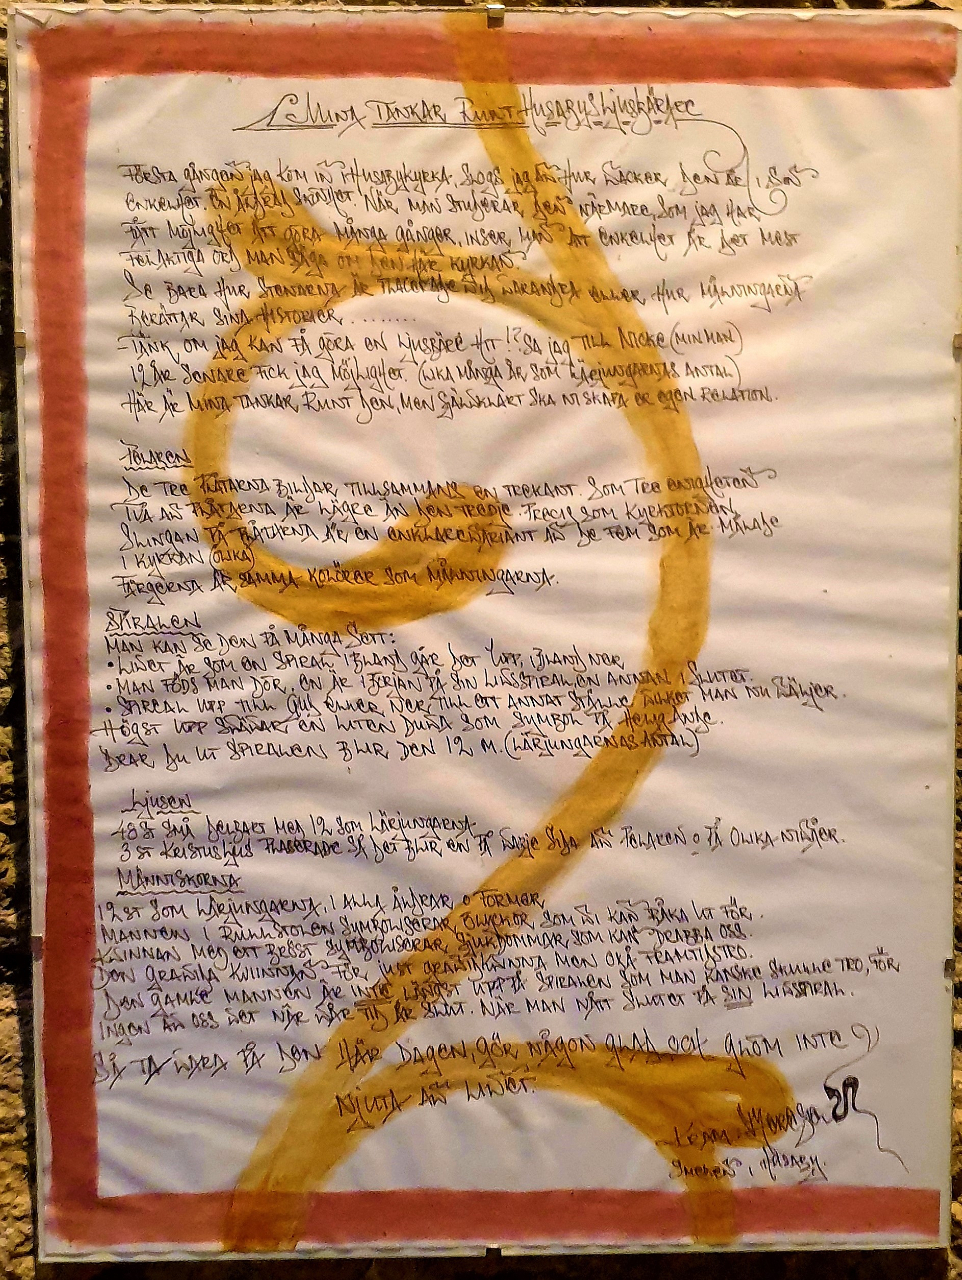 Mina tankar runt Husabys ljusbärare
Första gången jag kom in i Husaby kyrka, slogs jag av hur vacker den är, i sin
enkelhet en äkta skönhet. När man studerar den närmare, som jag har
fått möjlighet att göra många gånger, inser man att enkelhet är det mest
felaktiga ord man säga om den här kyrkan.
Se bara hur stenarna är placerade vid varandra eller hur målningarna
berättar sina historier........
-Tänk om jag kan få göra en ljusbäre hit!? Sa jag till Nicke (min man)
12 år senare fick jag möjlighet. (lika många år som lärjungarnas antal)
Här är mina tankar runt den, men självklart ska ni skapa er egen relation.
Pelaren
De tre plåtarna bildar tillsammans en trekant. Som tre enigheten
Två av plåtarna är lägre än den tredje. Precis som kyrktornen.
Slingan på plåtarna är en enklare variant av de fem som är målade
i kyrkan (olika)
Färgerna är samma kolörer som målningarna.
Spiralen
Man kan se den på många sett:
• Livet är som en spiral ibland går det upp, ibland ner.
• Man föds man dör. En är i början på sin livsspiral en annan i slutet.
• Spiral upp till gud eller ner till ett annat ställe vilket man nu väljer.
Högst upp svävar en liten duva som symbol på helig ande.
Drar du ut spiralen blir den 12 m. (lärjungarnas antal)
Ljusen
48 st små delbart med 12 som lärjungarna
3 st Kristusljus plaserade så det blir en på varje sida av pelaren o på olika nivåer.
Människorna
12 st som lärjungarna, i alla åldrar o former,
Mannen i rullstolen symboliserar olyckor, som vi kan råka ut för.
Kvinnan med ett bröst symboliserar sjukdommar som kan drabba oss.
Den gravida kvinnan för just gravid kvinna men oxå framtidstro.
Den gamle mannen är inte längst upp på spiralen som man kanske skulle tro, för
ingen av oss vet när vår tid är slut. När man nått slutet på sin livsspiral.
Så ta vara på den här dagen, gör någon glad och glöm inte
njuta av livet.
Smeden, Husaby.